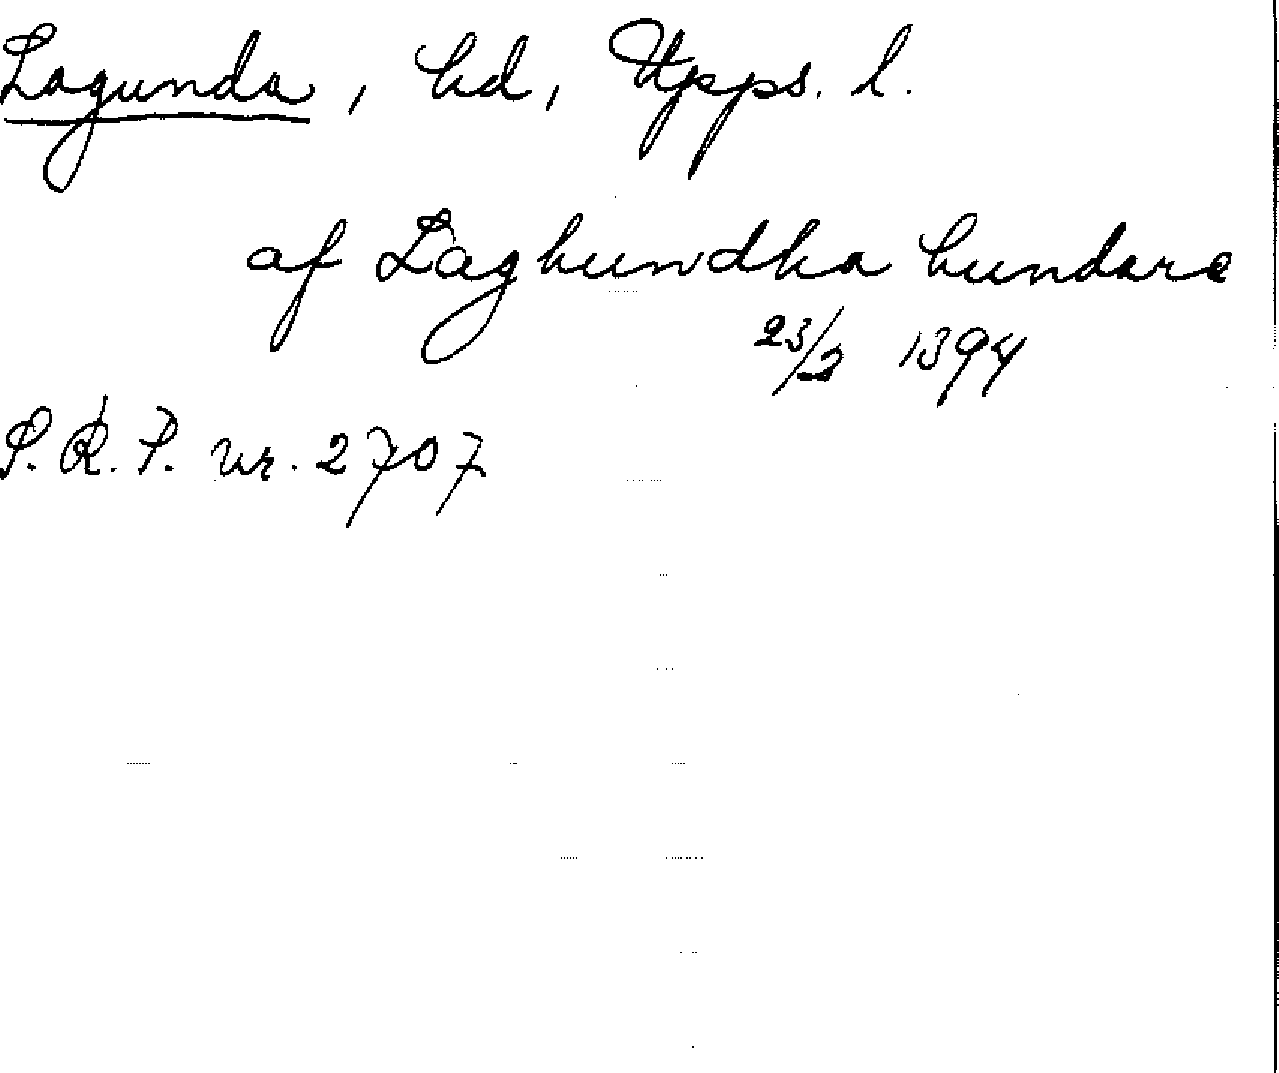 Lagunda, hd, Upps. l.
af Laghundha hundare
23/2 1394
S.R.P. nr. 2707